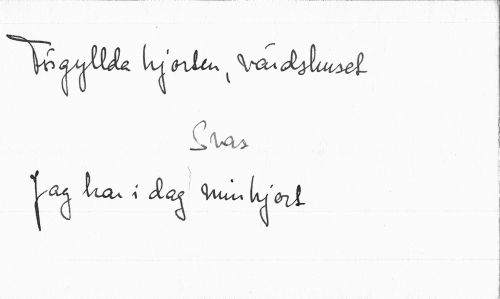 Förgyllda hjorten, värdshuset
Svas
Jag har i dag min hjort